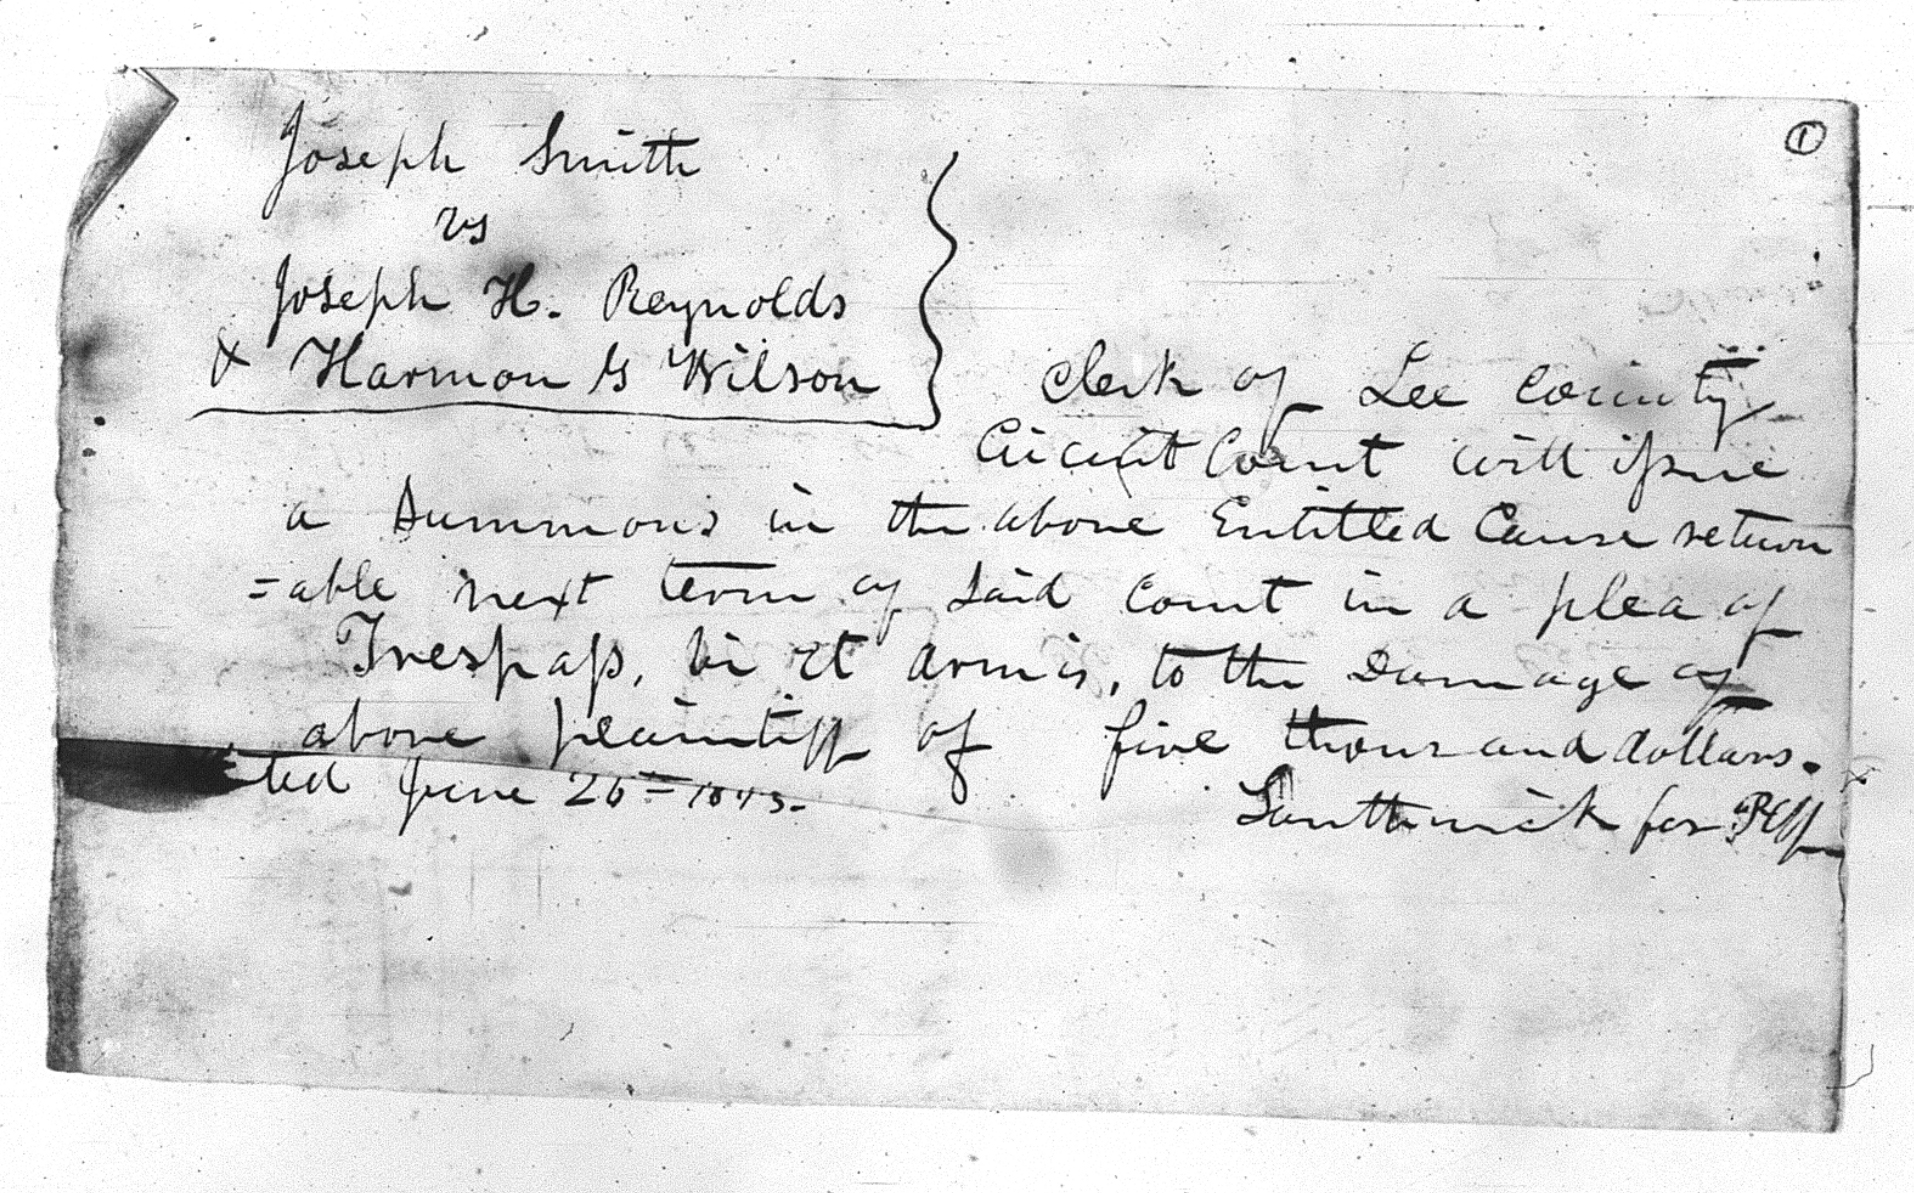 ①
Joseph Smith
vs
Joseph H. Reynolds
& Harmon G Wilson
Clerk of Lee County
Circuit Court will issue
a Summons in the above Entitled Cause return
=able next term of Said Court in a plea of
Trespass, vi et armis, to the Damage of
above plaintiff of five thousand dollars.
ted June 26th 1843.
Southwick for Plff